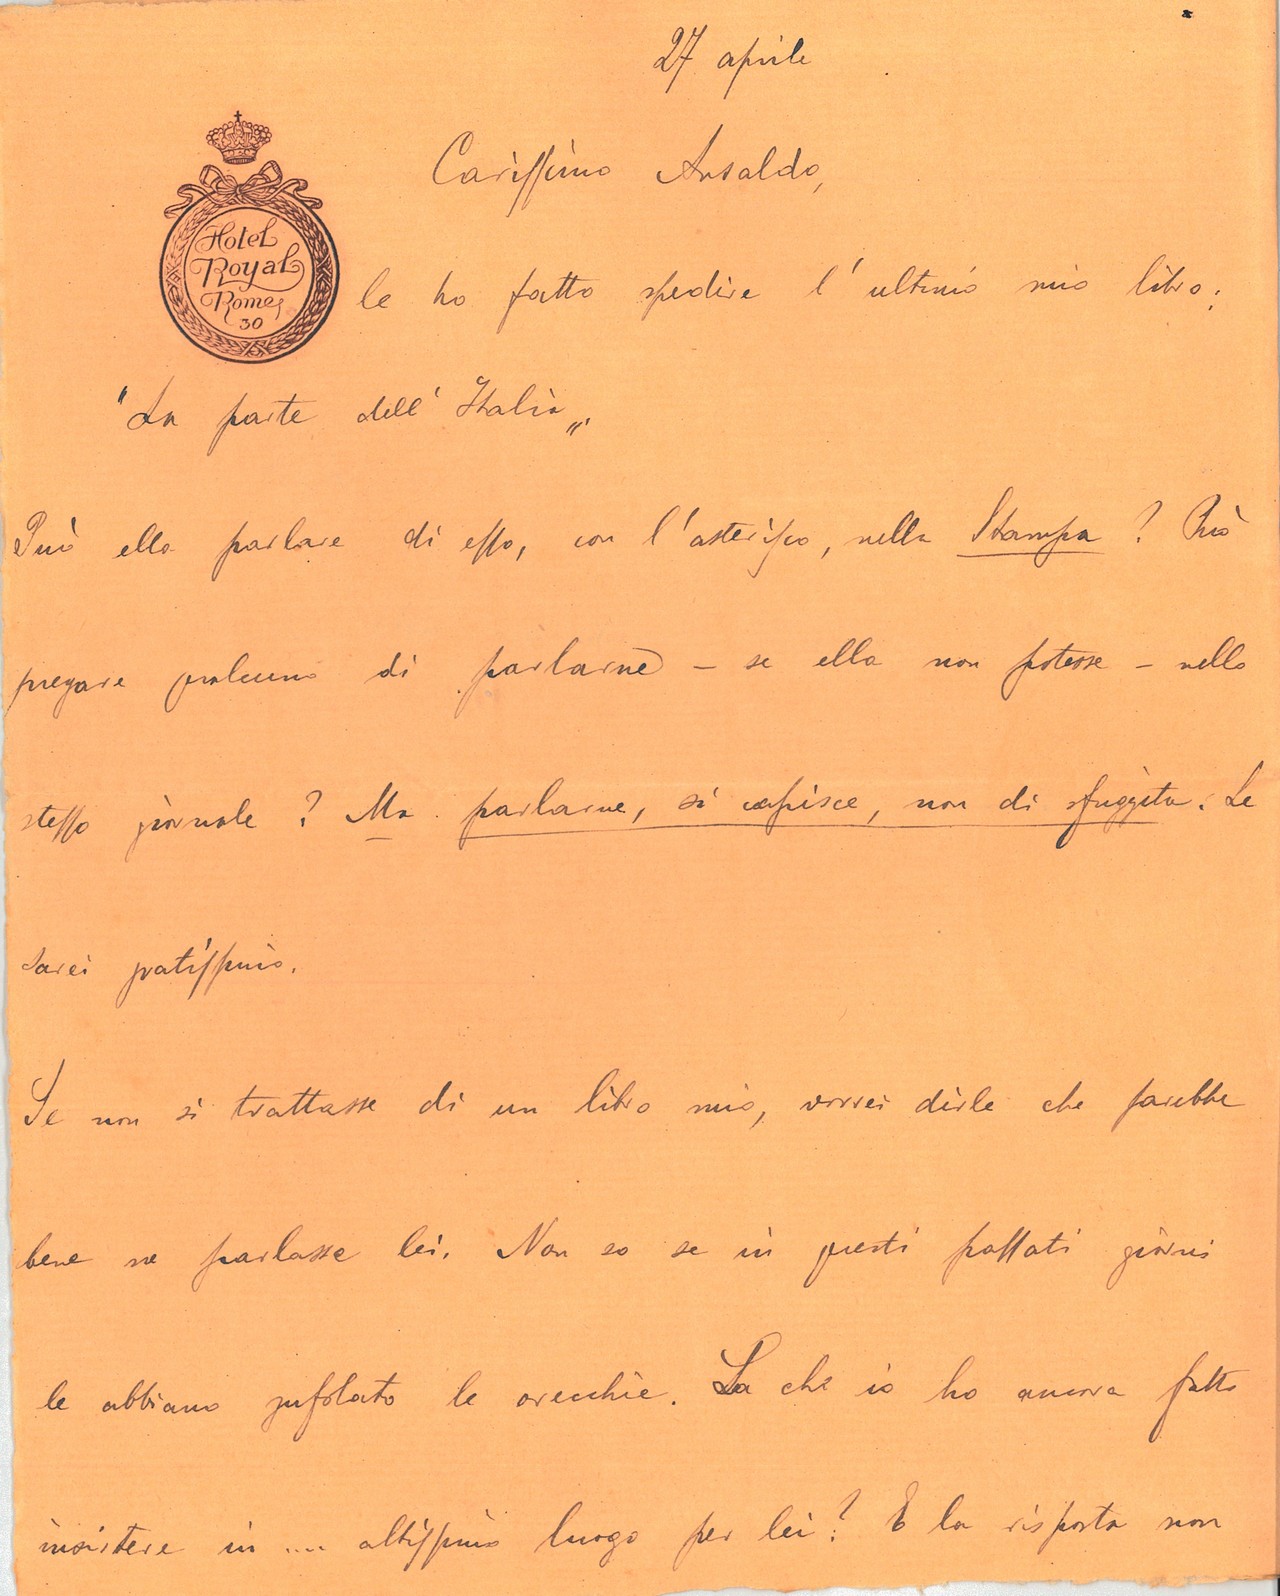 27 aprile
Carissimo Ansaldo,
Hotel
Royal
Rome
30
le ho fatto spedire l'ultimo mio libro:
"La parte dell'Italia„.
Può ella parlare di esso, con l'asterisco, nella Stampa? Può
pregare qualcuno di parlarne – se ella non potesse – nello
stesso giornale? Ma parlarne, si capisce, non di sfuggita. Le
sarei gratissimo.
Se non si trattasse di un libro mio, vorrei dirle che sarebbe
bene ne parlasse lei. Non so se in questi passati giorni
le abbiano zufolato le orecchie. Sa che io ho ancora fatto
insistere in .... altissimo luogo per lei? E la risposta non